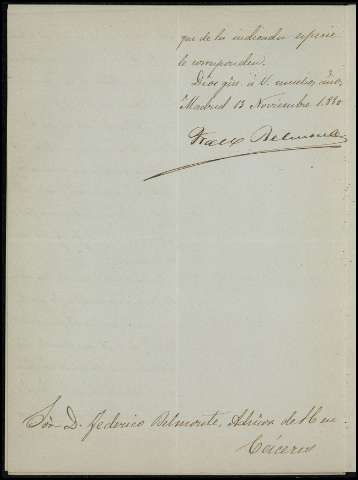 que de los indicados
le corresponden.
Dios gue. á V. muchos años.
Madrid 13 Noviembre 1.880
Belmonte
Sor. D. Federico Belmonte, Admor. de H en
Cáceres